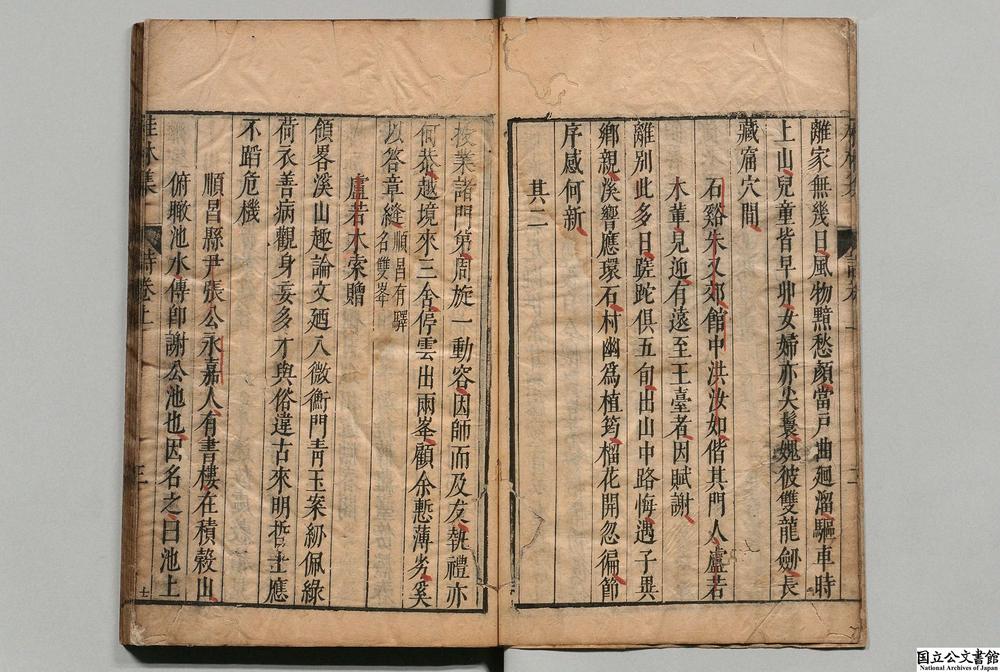 離家無幾日風物黯愁顔當戸曲廻溜驅車時
上山兒童皆早丱女婦亦尖鬟媿彼雙龍劒長
藏窟穴間
石谿朱又郊館中洪汝如偕其門人盧若
木輩見迎有遠至王臺者因賦謝
離別此多日蹉跎俱五旬出山中路悔遇子異
鄉親溪響應環石村幽爲植筠榴花開忽徧節
序感何新
其二
投業諸門第周旋一動容因師而及友執禮亦
何恭越境來三舍停雲出兩峯顧余慙薄劣奚
以答章縫順昌有驛名雙峯
盧若木索贈
領畧溪山趣論文廼入微衡門青玉案紉佩綠
荷衣善病觀身妄多才與俗違古來明哲士應
不蹈危機
順昌縣尹張公永嘉人有書樓在積穀山
俯瞰池水傳即謝公池也因名之曰池上
詩卷上
三
国立公文書館
National Archives of Japan